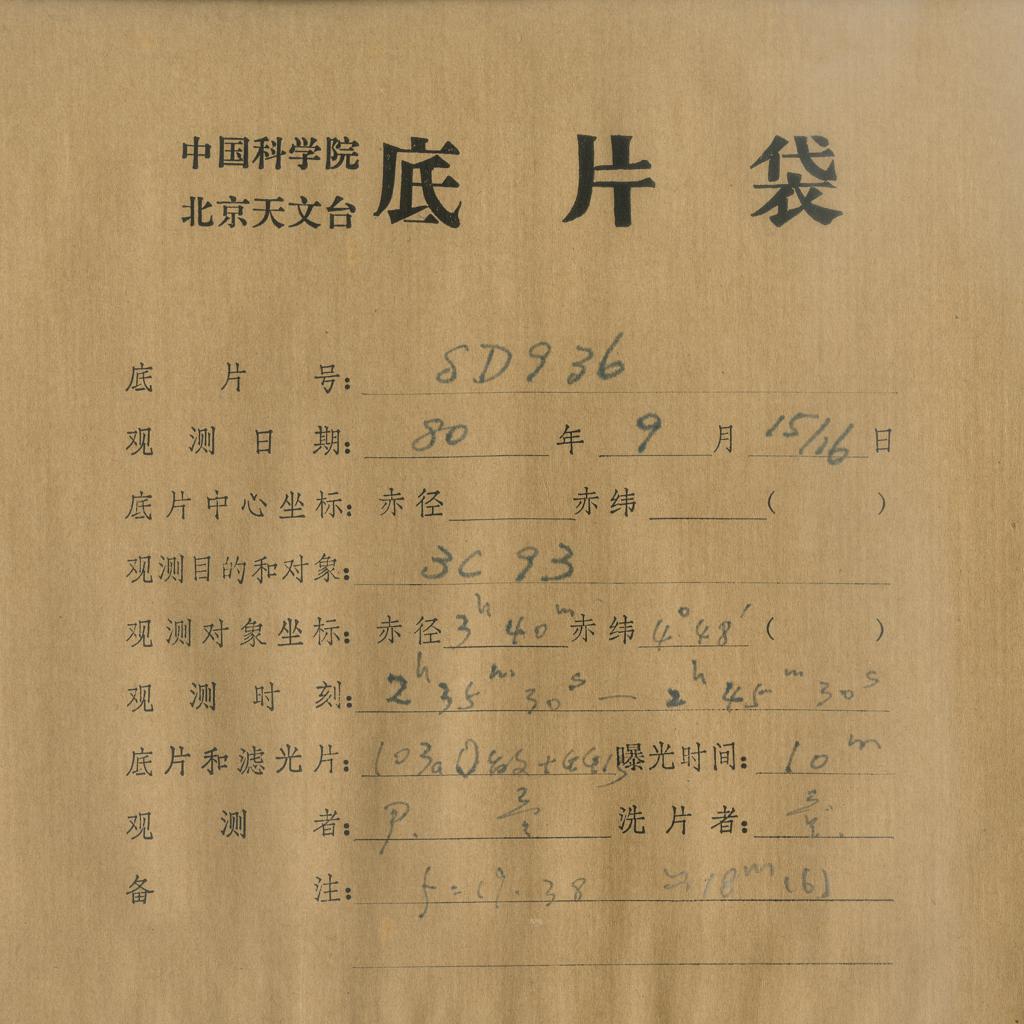 中国科学院
北京天文台
底片袋
底片号：SD936
观测日期：80年9月15/16日
底片中心坐标：赤径 赤纬 （ ）
观测目的和对象：3C 93
观测对象坐标：赤径3h 40m赤纬4°48′（ ）
观测时刻：2h 35m 30s — 2h 45m 30s
底片和滤光片：103aO 曝光时间：10m
观测者： 洗片者：
备注：f=19.38 18m